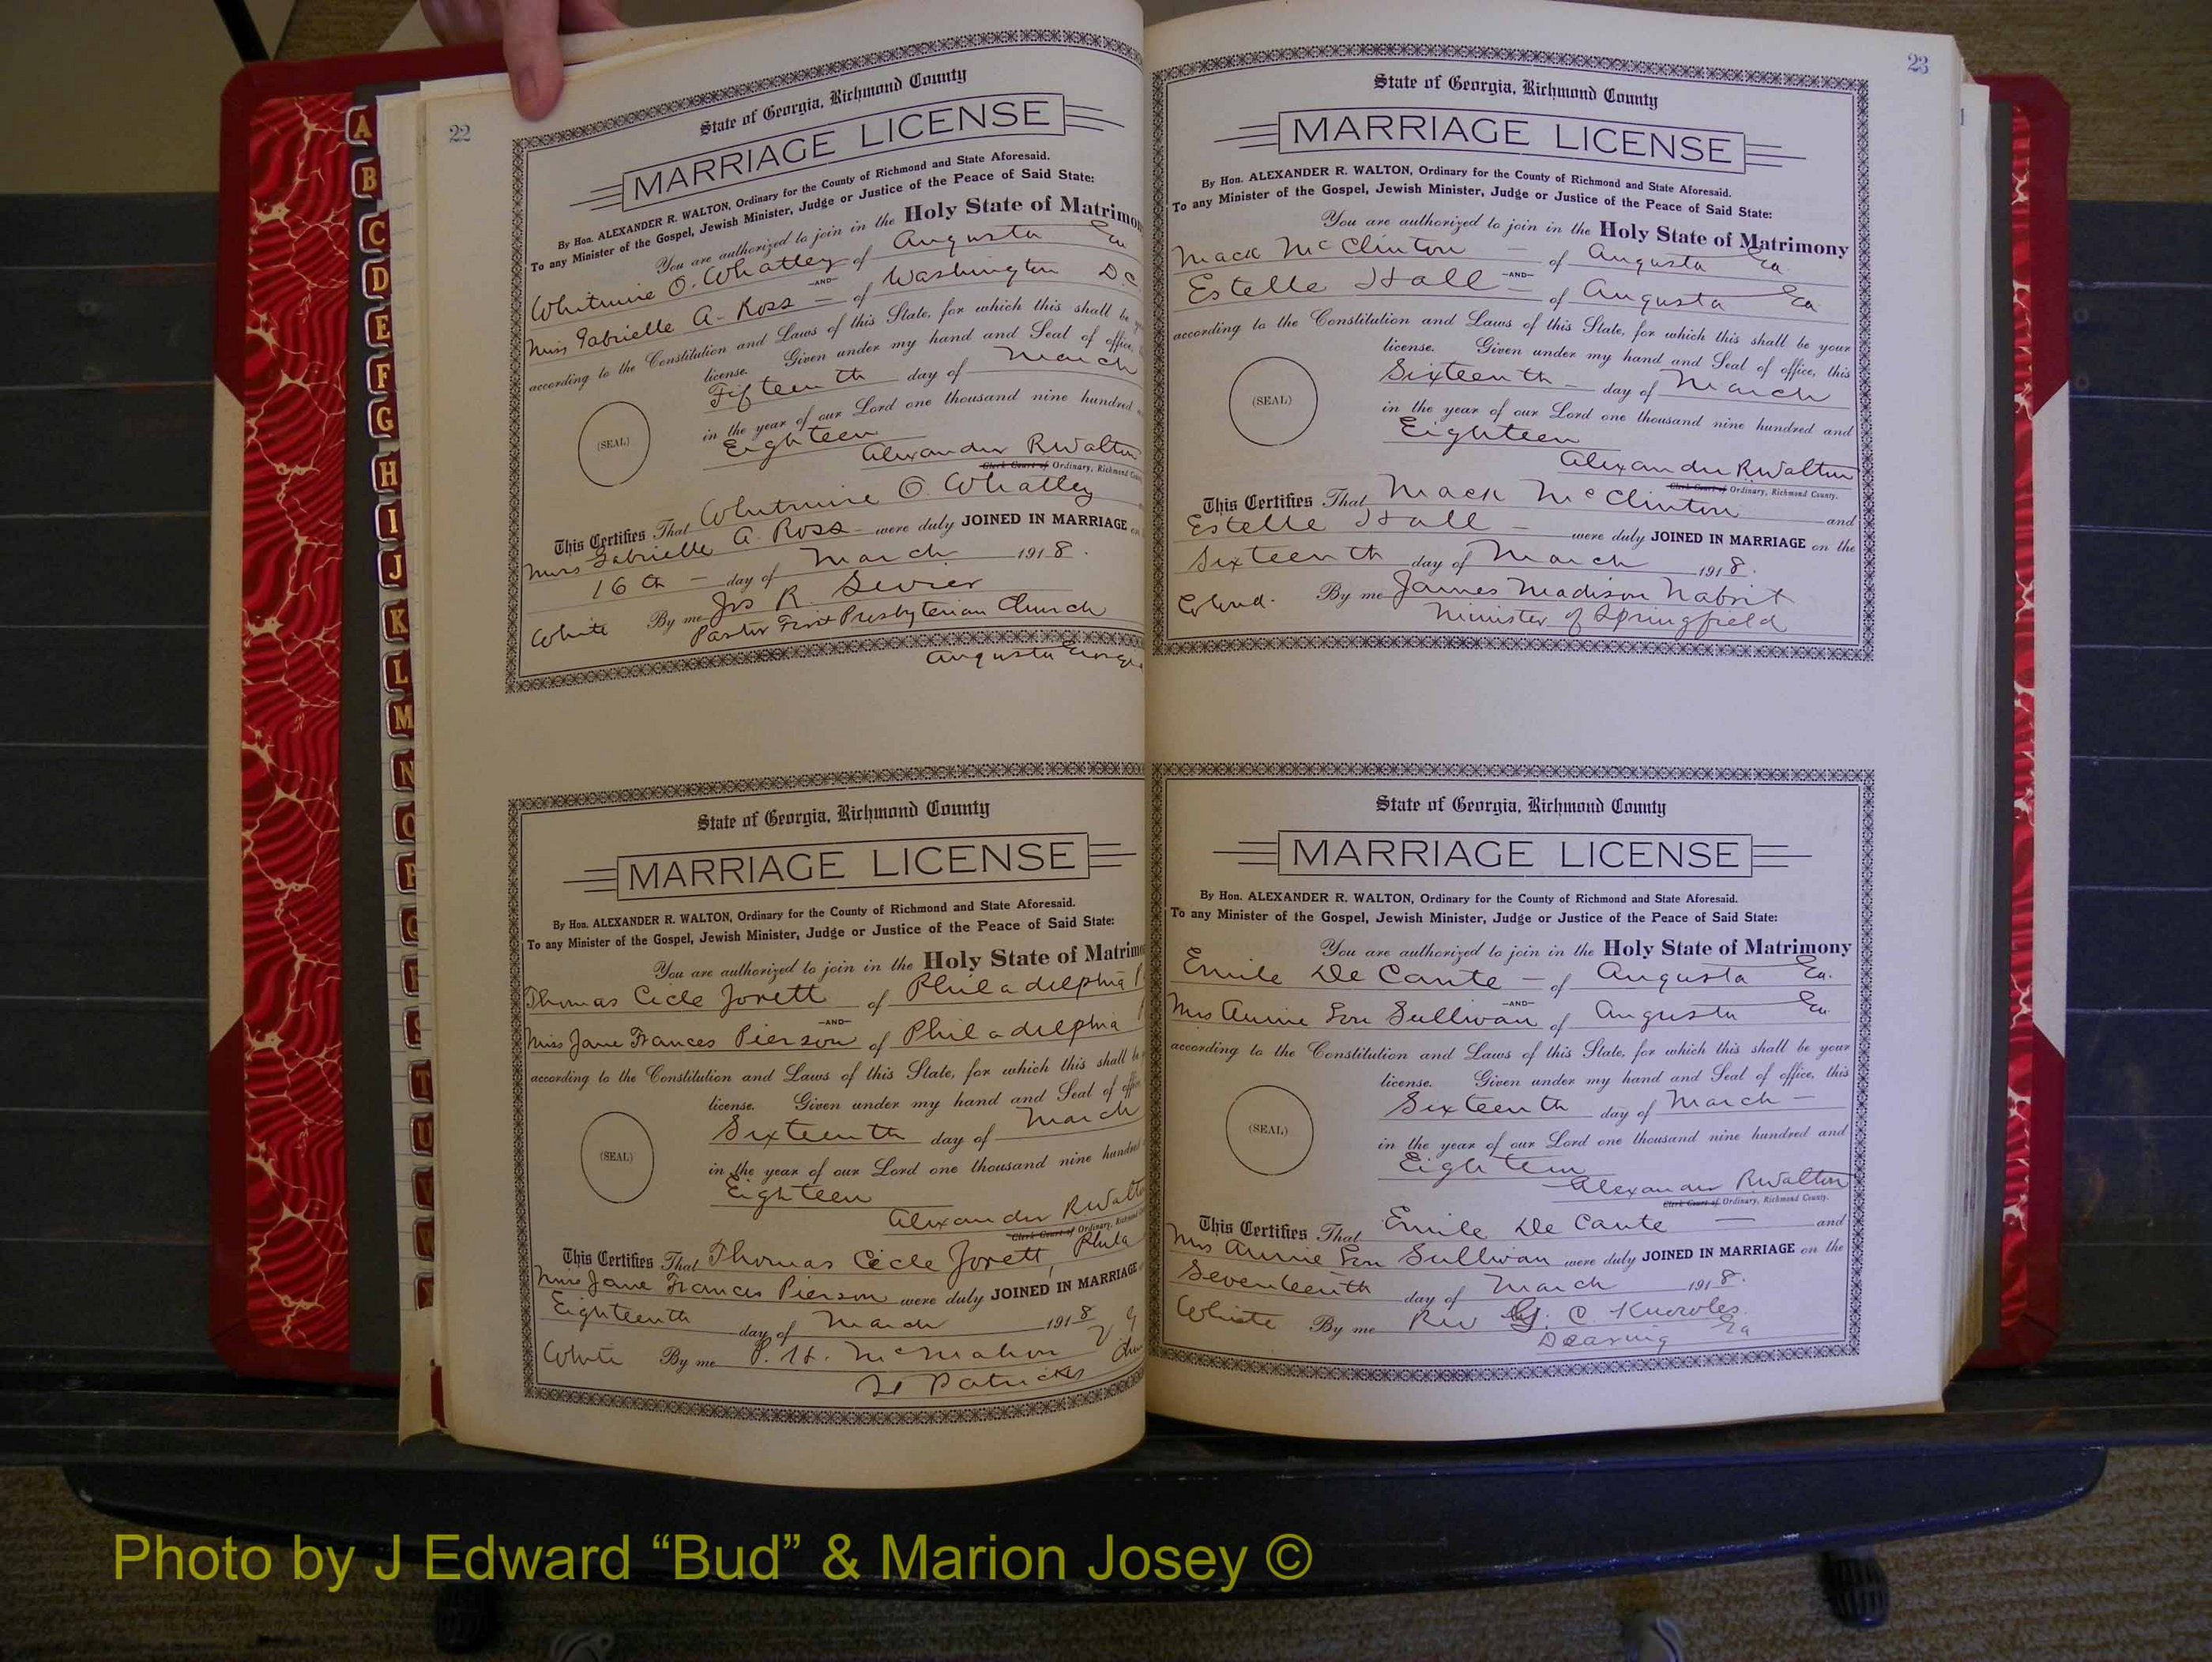 22
State of Georgia, Richmond County
MARRIAGE LICENSE
By Hon. ALEXANDER R. WALTON, Ordinary for the County of Richmond and State Aforesaid.
To any Minister of the Gospel, Jewish Minister, Judge or Justice of the Peace of Said State:
You are authorized to join in the Holy State of Matrimon
O. Whatley of Augusta Ga
-AND-
Miss Gabrielle A. Ross - of Washington D.C
according to the Constitution and Laws of this State, for which this shall be
license. Given under my hand and Seal of office,
Fifteenth day of March
in the year of our Lord one thousand nine hundred
Eighteen
(SEAL)
Alexander R Walton
Clerk Court of Ordinary, Richmond
This Certifies That O. Whatley
Miss Gabrielle A. Ross - were duly JOINED IN MARRIAGE
16th - day of March 1918.
White By me Jos R. Sevier
Pastor First Presbyterian Church
Augusta Georgia
State of Georgia, Richmond County
MARRIAGE LICENSE
By Hon. ALEXANDER R. WALTON, Ordinary for the County of Richmond and State Aforesaid.
To any Minister of the Gospel, Jewish Minister, Judge or Justice of the Peace of Said State:
You are authorized to join in the Holy State of Matrimo
Thomas Cicle Jorett of Philadelphia
-AND-
Miss Jane Frances Pierson of Philadelphia
according to the Constitution and Laws of this State, for which this shall
license. Given under my hand and Seal of office
Sixteenth day of March
in the year of our Lord one thousand nine hundred
Eighteen
(SEAL)
Alexander R Walt
Clerk Court of Ordinary,
This Certifies That Thomas Cicle Jorett, Phila
Miss Jane Frances Pierson were duly JOINED IN MARRIAGE
Eighteenth day of March 1918
White By me P. H. McMahon
St Patricks
23
State of Georgia, Richmond County
MARRIAGE LICENSE
By Hon. ALEXANDER R. WALTON, Ordinary for the County of Richmond and State Aforesaid.
To any Minister of the Gospel, Jewish Minister, Judge or Justice of the Peace of Said State:
You are authorized to join in the Holy State of Matrimony
Mack McClinton - of Augusta Ga.
-AND-
Estelle Hall - of Augusta Ga
according to the Constitution and Laws of this State, for which this shall be your
license. Given under my hand and Seal of office, this
Sixteenth - day of March
in the year of our Lord one thousand nine hundred and
Eighteen
(SEAL)
Alexander R Walton
Clerk Court of Ordinary, Richmond County.
This Certifies That Mack McClinton and
Estelle Hall - were duly JOINED IN MARRIAGE on the
Sixteenth day of March 1918.
Colored. By me James Madison Nabrit
Minister of Springfield
State of Georgia, Richmond County
MARRIAGE LICENSE
By Hon. ALEXANDER R. WALTON, Ordinary for the County of Richmond and State Aforesaid.
To any Minister of the Gospel, Jewish Minister, Judge or Justice of the Peace of Said State:
You are authorized to join in the Holy State of Matrimony
Emile De Cante - of Augusta Ga.
-AND-
Mrs Annie Lou Sullivan of Augusta Ga
according to the Constitution and Laws of this State, for which this shall be your
license. Given under my hand and Seal of office, this
Sixteenth day of March -
in the year of our Lord one thousand nine hundred and
Eighteen
(SEAL)
Alexander R Walton
Clerk Court of Ordinary, Richmond County.
This Certifies That Emile De Cante - and
Mrs Annie Lou Sullivan were duly JOINED IN MARRIAGE on the
Seventeenth day of March 1918.
White By me Rev G. C. Knowles
Dearing Ga
A
B
C
D
E
F
G
H
I
J
K
L
M
N
O
P
Q
R
S
T
U
V
W
Photo by J Edward “Bud” & Marion Josey ©